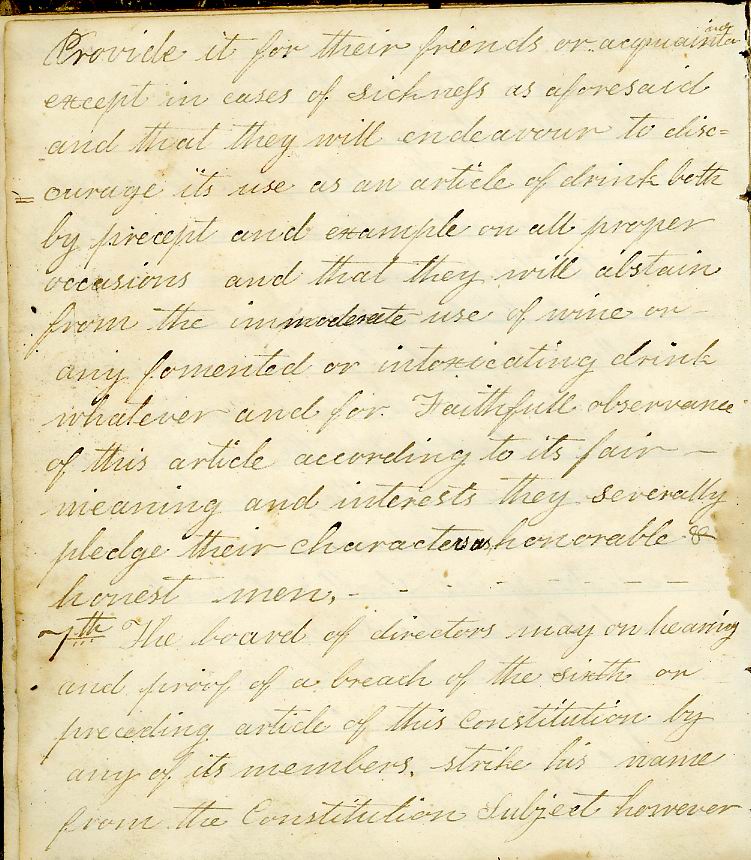 Provide it for their friends or acquainta
nces
except in cases of sickness as aforesaid
and that they will endeavour to disc=
=ourage its use as an article of drink both
by precept and example on all proper
occasions and that they will abstain
from the immoderate use of wine or
any fomented or intoxicating drink
whatever and for Faithfull observance
of this article according to its fair —
meaning and interests they severally
pledge their characters as honorable &
honest men. - - - - - - - -
7th The board of directors may on hearing
and proof of a breach of the sixth or
preceding article of this Constitution by
any of its members. strike his name
from the Constitution Subject however